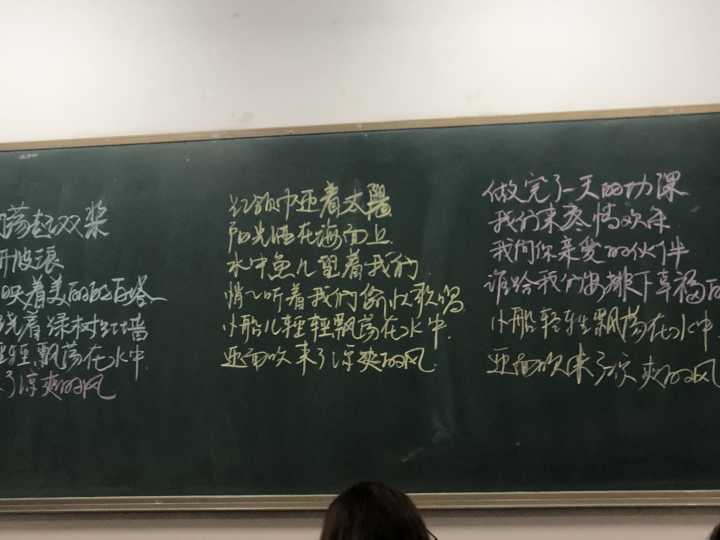 荡起双桨
开波浪
映着美丽的白塔
绕着绿树红墙
轻轻飘荡在水中
了凉爽的风
红领巾迎着太
阳光洒在海面上
水中鱼儿望着我们
悄悄听着我们愉快歌唱
小船儿轻轻飘荡在水中
迎面吹来了凉爽的风
做完了一天的功课
我们来尽情欢乐
我问你亲爱的伙伴
谁给我们安排下幸福的
小船轻轻飘荡在水中
迎面吹来了凉爽的风